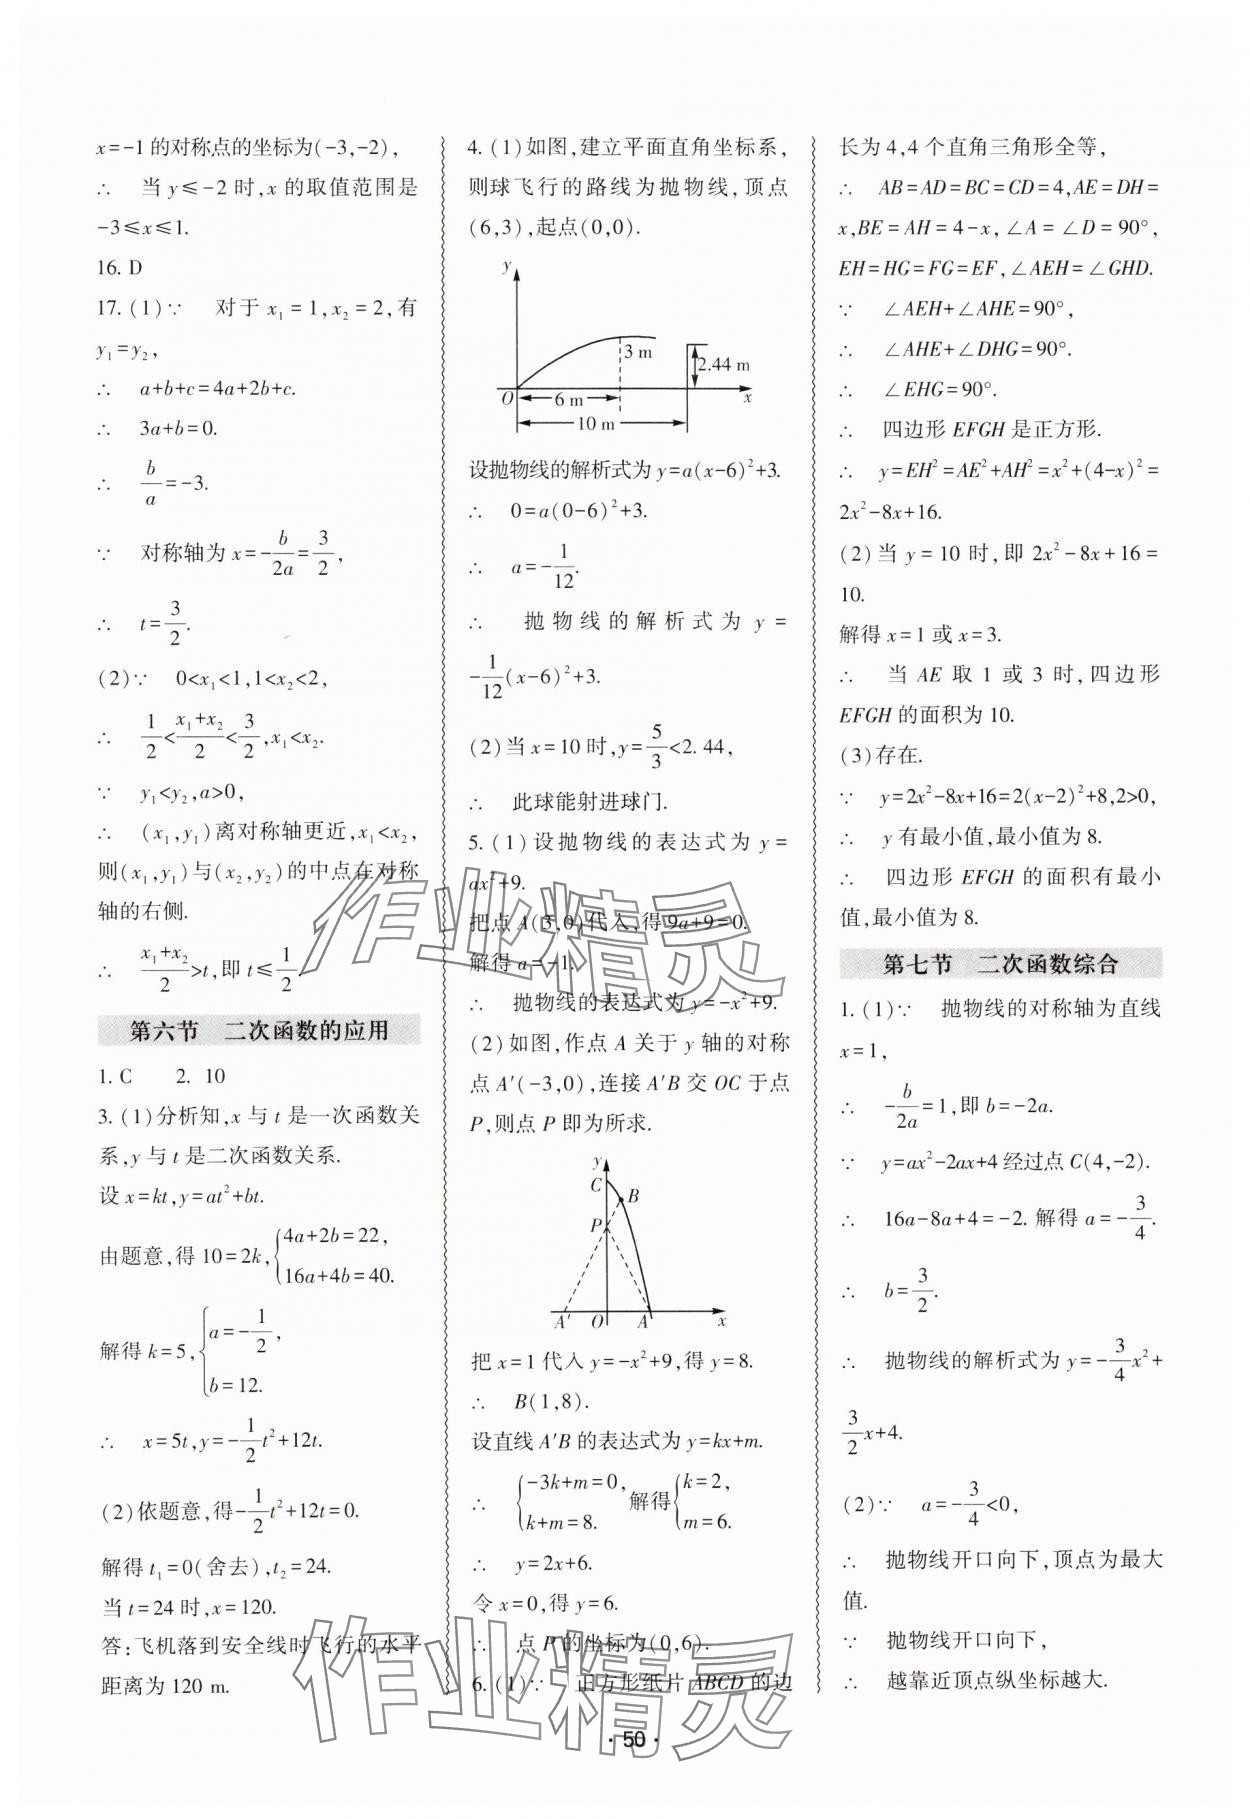 x=-1的对称点的坐标为(-3,-2),
∴ 当y≤-2时,x的取值范围是
-3≤x≤1.
16. D
17. (1)∵ 对于x₁=1,x₂=2,有
y₁=y₂,
∴ a+b+c=4a+2b+c.
∴ 3a+b=0.
∴ b/a=-3.
∵ 对称轴为x=-b/2a=3/2,
∴ t=3/2.
(2)∵ 0<x₁<1,1<x₂<2,
∴ 1/2<(x₁+x₂)/2<3/2,x₁<x₂.
∵ y₁<y₂,a>0,
∴ (x₁,y₁)离对称轴更近,x₁<x₂,
则(x₁,y₁)与(x₂,y₂)的中点在对称
轴的右侧.
∴ (x₁+x₂)/2>t,即t≤1/2.
第六节 二次函数的应用
1. C 2. 10
3. (1)分析知,x与t是一次函数关
系,y与t是二次函数关系.
设x=kt,y=at²+bt.
由题意,得10=2k,{4a+2b=22,
16a+4b=40.
解得k=5,{a=-1/2,
b=12.
∴ x=5t,y=-1/2t²+12t.
(2)依题意,得-1/2t²+12t=0.
解得t₁=0(舍去),t₂=24.
当t=24时,x=120.
答:飞机落到安全线时飞行的水平
距离为120 m.
4. (1)如图,建立平面直角坐标系,
则球飞行的路线为抛物线,顶点
(6,3),起点(0,0).
y
3 m
2.44 m
O
6 m
x
10 m
设抛物线的解析式为y=a(x-6)²+3.
∴ 0=a(0-6)²+3.
∴ a=-1/12.
∴ 抛物线的解析式为y=
-1/12(x-6)²+3.
(2)当x=10时,y=5/3<2.44,
∴ 此球能射进球门.
5. (1)设抛物线的表达式为y=
ax²+9.
把点A(3,0)代入,得9a+9=0.
解得a=-1.
∴ 抛物线的表达式为y=-x²+9.
(2)如图,作点A关于y轴的对称
点A′(-3,0),连接A′B交OC于点
P,则点P即为所求.
y
C
B
P
A′ O A x
把x=1代入y=-x²+9,得y=8.
∴ B(1,8).
设直线A′B的表达式为y=kx+m.
∴ {-3k+m=0,
k+m=8. 解得{k=2,
m=6.
∴ y=2x+6.
令x=0,得y=6.
∴ 点P的坐标为(0,6).
6. (1)∵ 正方形纸片ABCD的边
长为4,4个直角三角形全等,
∴ AB=AD=BC=CD=4,AE=DH=
x,BE=AH=4-x,∠A=∠D=90°,
EH=HG=FG=EF,∠AEH=∠GHD.
∵ ∠AEH+∠AHE=90°,
∴ ∠AHE+∠DHG=90°.
∴ ∠EHG=90°.
∴ 四边形EFGH是正方形.
∴ y=EH²=AE²+AH²=x²+(4-x)²=
2x²-8x+16.
(2)当y=10时,即2x²-8x+16=
10.
解得x=1或x=3.
∴ 当AE取1或3时,四边形
EFGH的面积为10.
(3)存在.
∵ y=2x²-8x+16=2(x-2)²+8,2>0,
∴ y有最小值,最小值为8.
∴ 四边形EFGH的面积有最小
值,最小值为8.
第七节 二次函数综合
1. (1)∵ 抛物线的对称轴为直线
x=1,
∴ -b/2a=1,即b=-2a.
∵ y=ax²-2ax+4经过点C(4,-2).
∴ 16a-8a+4=-2. 解得a=-3/4.
∴ b=3/2.
∴ 抛物线的解析式为y=-3/4x²+
3/2x+4.
(2)∵ a=-3/4<0,
∴ 抛物线开口向下,顶点为最大
值.
∵ 抛物线开口向下,
∴ 越靠近顶点纵坐标越大.
作业精灵
作业精灵
· 50 ·